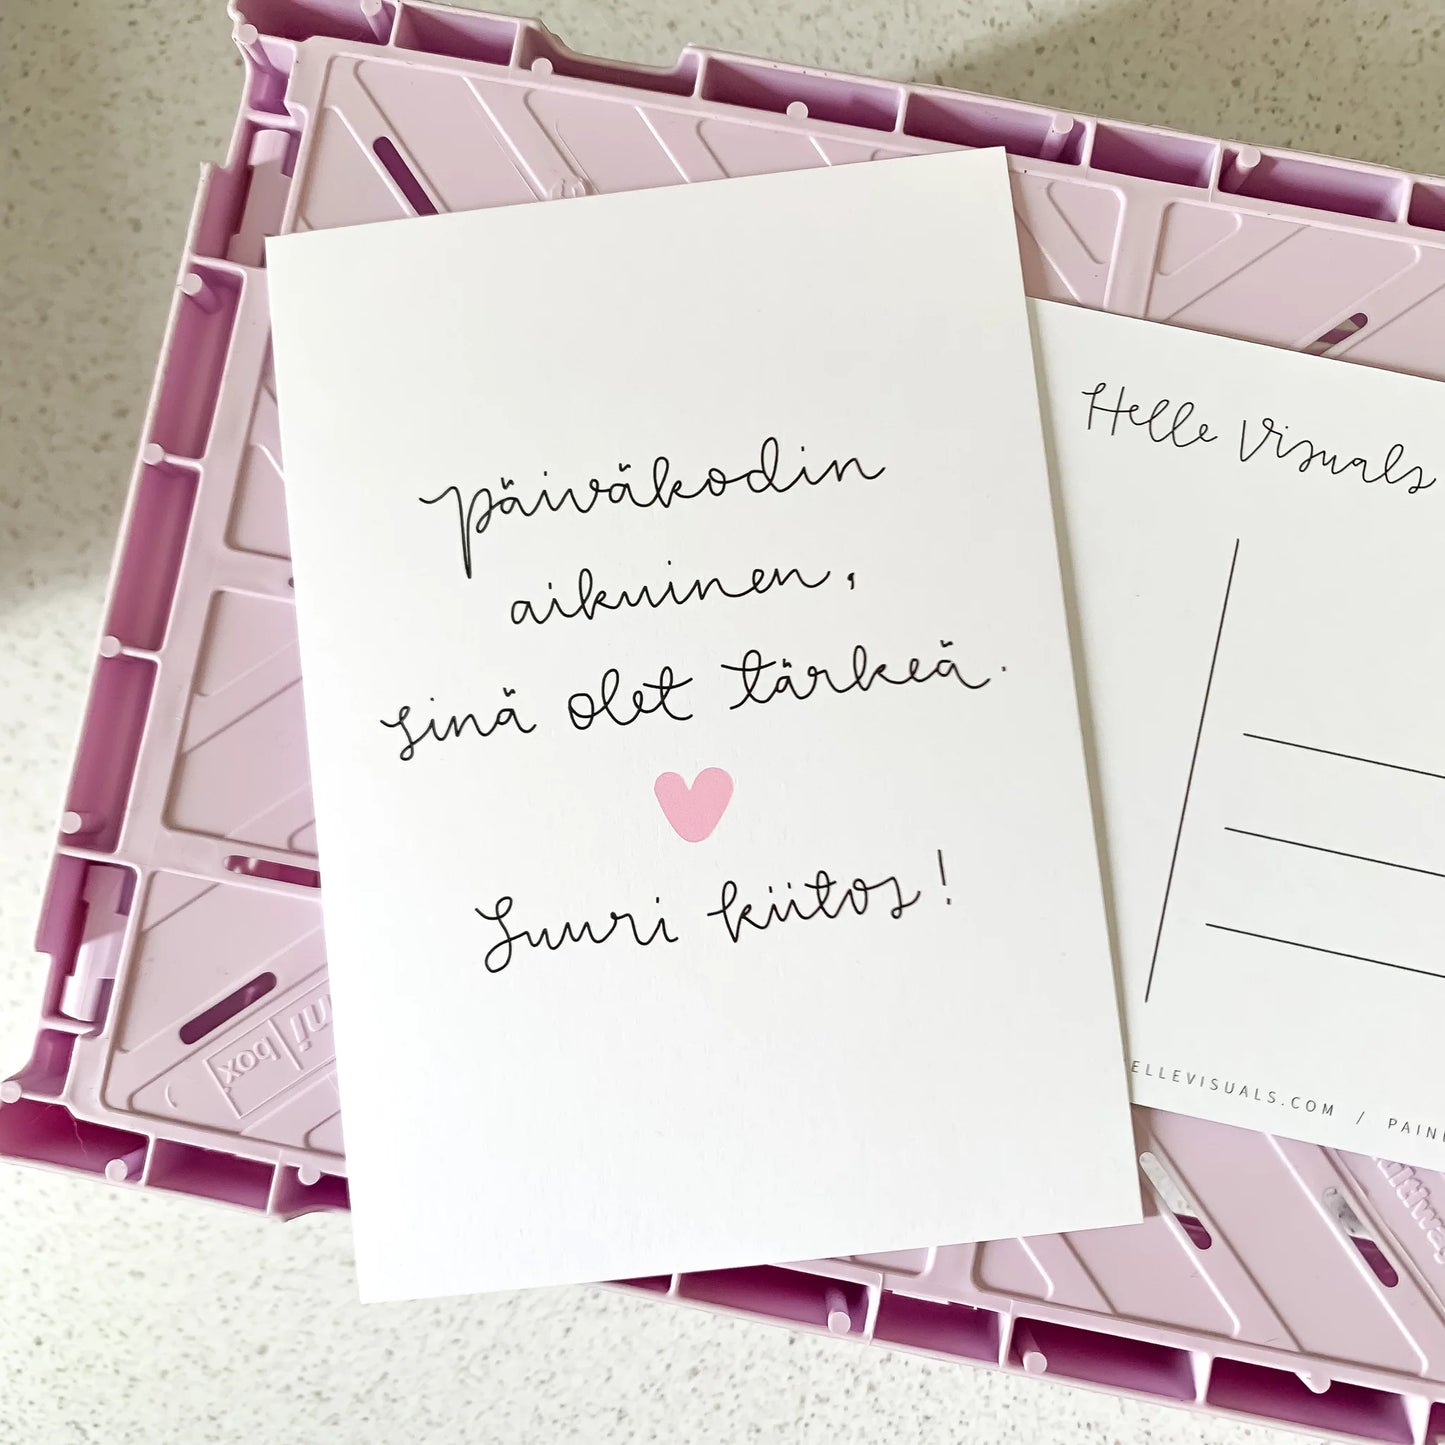 Päiväkodin
aikuinen,
sinä olet tärkeä.
Suuri kiitos!
Helle Visuals
ELLEVISUALS.COM / PAIN
mini
box